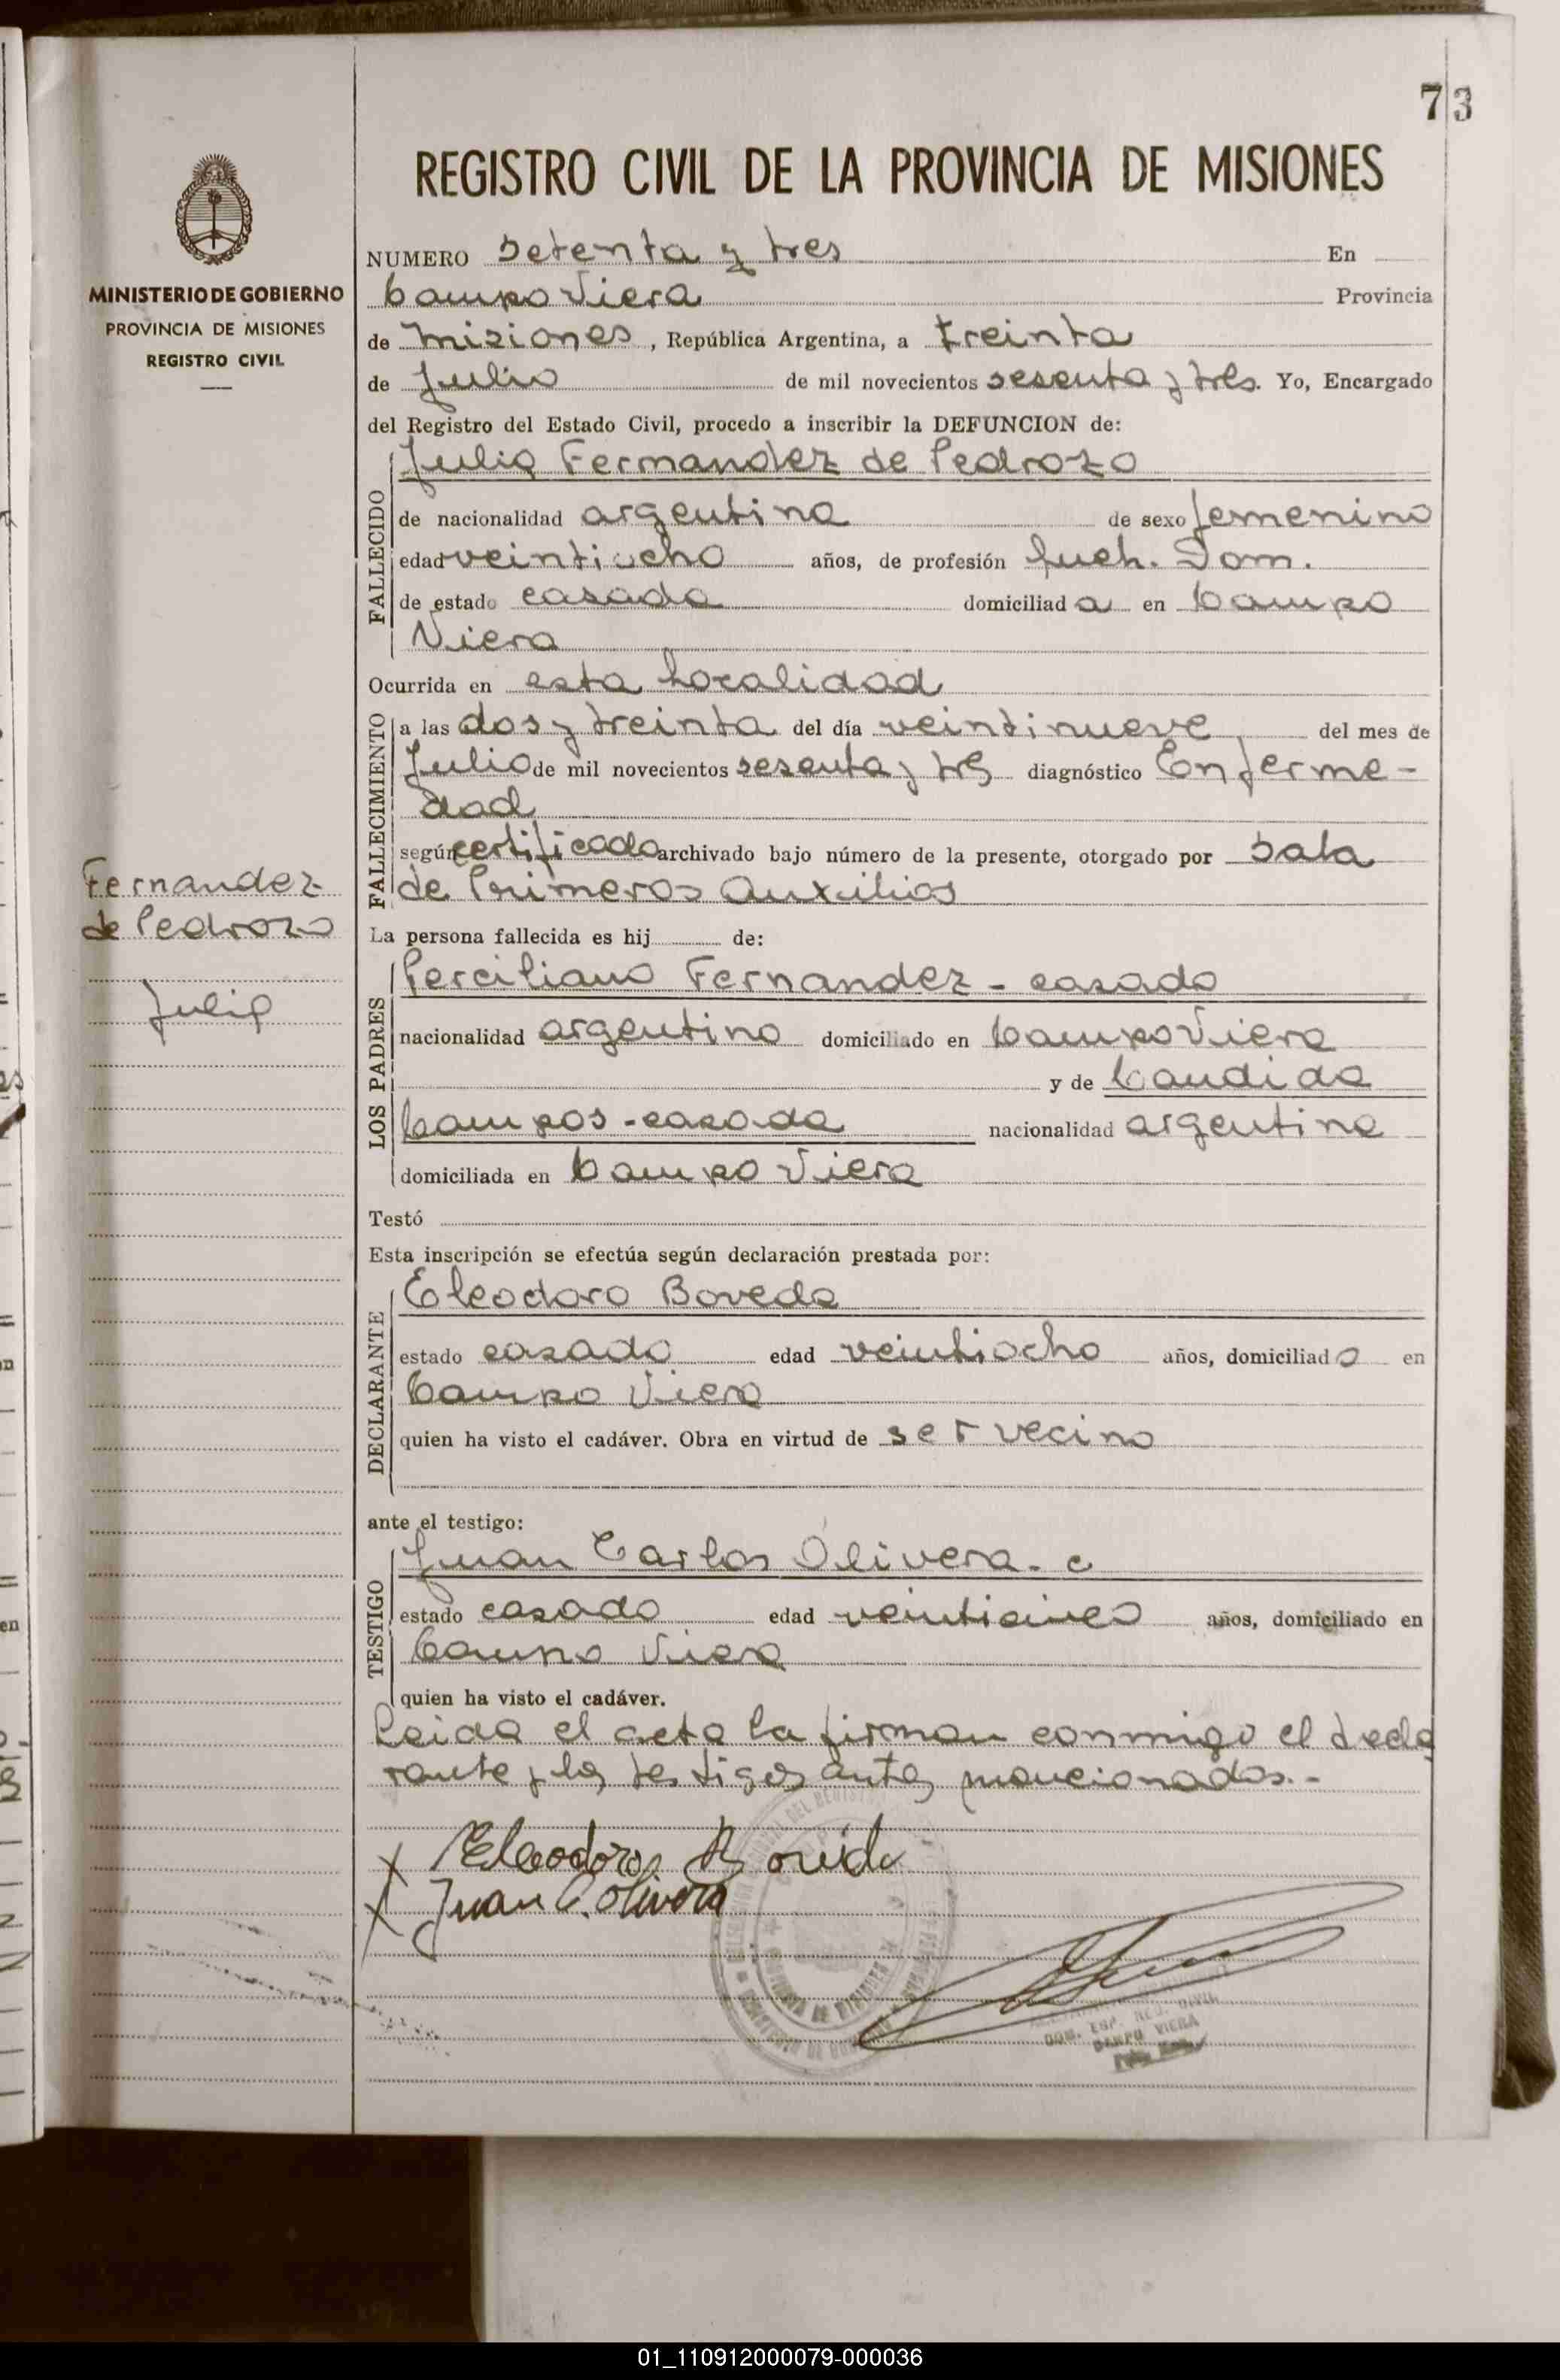 73
REGISTRO CIVIL DE LA PROVINCIA DE MISIONES
MINISTERIO DE GOBIERNO
PROVINCIA DE MISIONES
REGISTRO CIVIL
NUMERO Setenta y tres En
Campo Viera Provincia
de Misiones, República Argentina, a treinta
de Julio de mil novecientos sesenta y tres. Yo, Encargado
del Registro del Estado Civil, procedo a inscribir la DEFUNCION de:
FALLECIDO
Julia Fernandez de Pedrozo
de nacionalidad argentina de sexo femenino
edad veintiocho años, de profesión Queh. Dom.
de estado casada domiciliad a en Campo
Viera
Ocurrida en esta Localidad
FALLECIMIENTO
a las dos y treinta del día veintinueve del mes de
Julio de mil novecientos sesenta y tres diagnóstico Enferme-
dad
según certificado archivado bajo número de la presente, otorgado por Sala
de Primeros Auxilios
Fernandez
de Pedrozo
Julia
La persona fallecida es hij de:
LOS PADRES
Perciliano Fernandez - casado
nacionalidad argentino domiciliado en Campo Viera
y de Candida
Campos - casada nacionalidad argentina
domiciliada en Campo Viera
Testó
Esta inscripción se efectúa según declaración prestada por:
DECLARANTE
Eleodoro Boveda
estado casado edad veintiocho años, domiciliad o en
Campo Viera
quien ha visto el cadáver. Obra en virtud de ser vecino
ante el testigo:
TESTIGO
Juan Carlos Olivera.
estado casado edad veinticinco años, domiciliado en
Campo Viera
quien ha visto el cadáver.
Leida el acta la firman conmigo el decla
rante y los testigos antes mencionados.-
x Eleodoro Boveda
x Juan C. Olivera
CAMPO VIERA
01_110912000079-000036